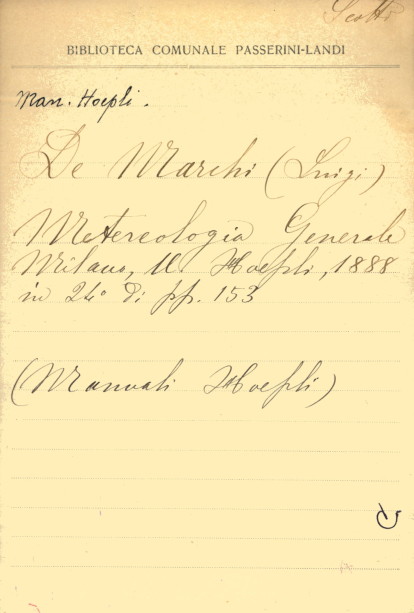 Scotti
BIBLIOTECA COMUNALE PASSERINI-LANDI
Man. Hoepli.
De Marchi (Luigi)
Metereologia Generale
Milano, U. Hoepli, 1888
in 24° di pp. 153
(Manuali Hoepli)